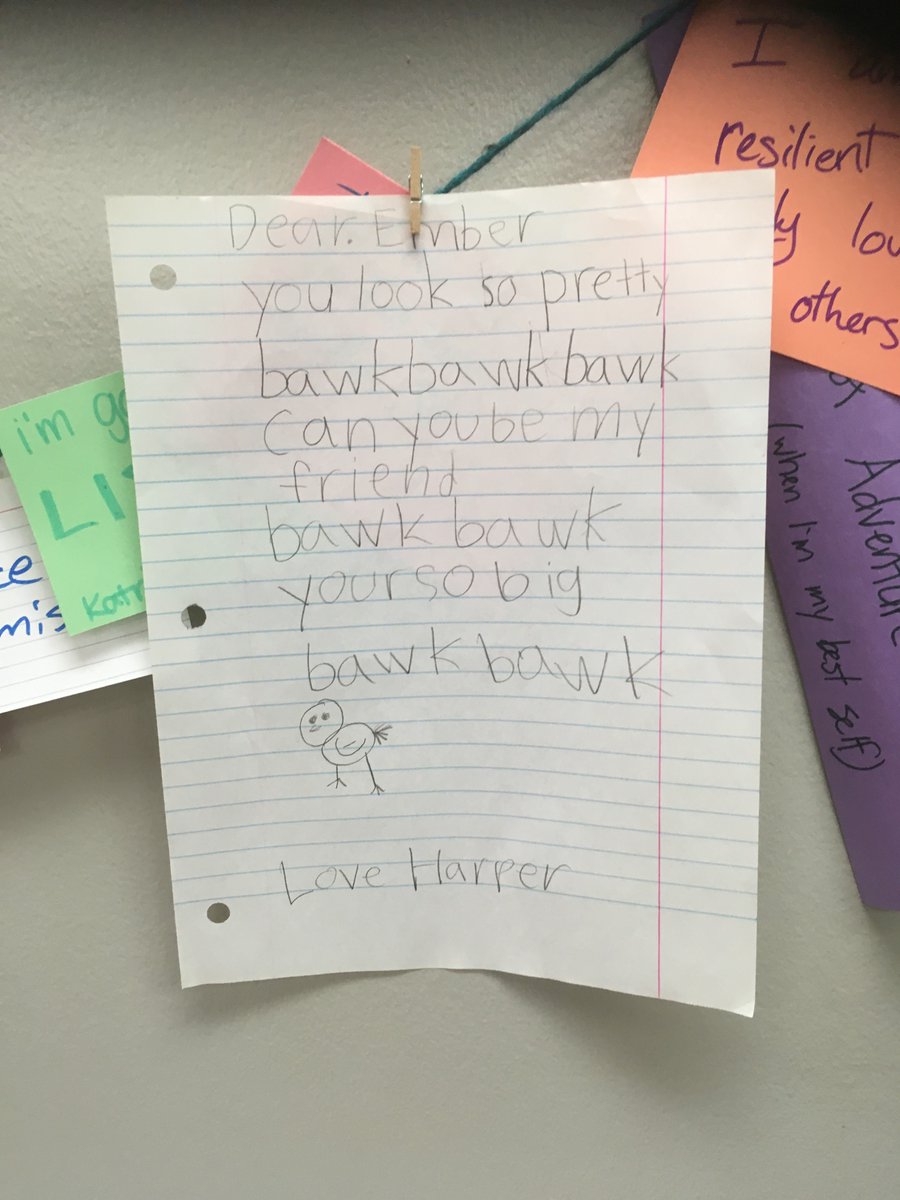 Dear. Ember
you look so pretty
bawkbawk bawk
Can yoube my
friend
bawk bawk
yourso big
bawk bawk
Love Harper
I
resilient
others
i'm
Adventure
(when I'm my best self)